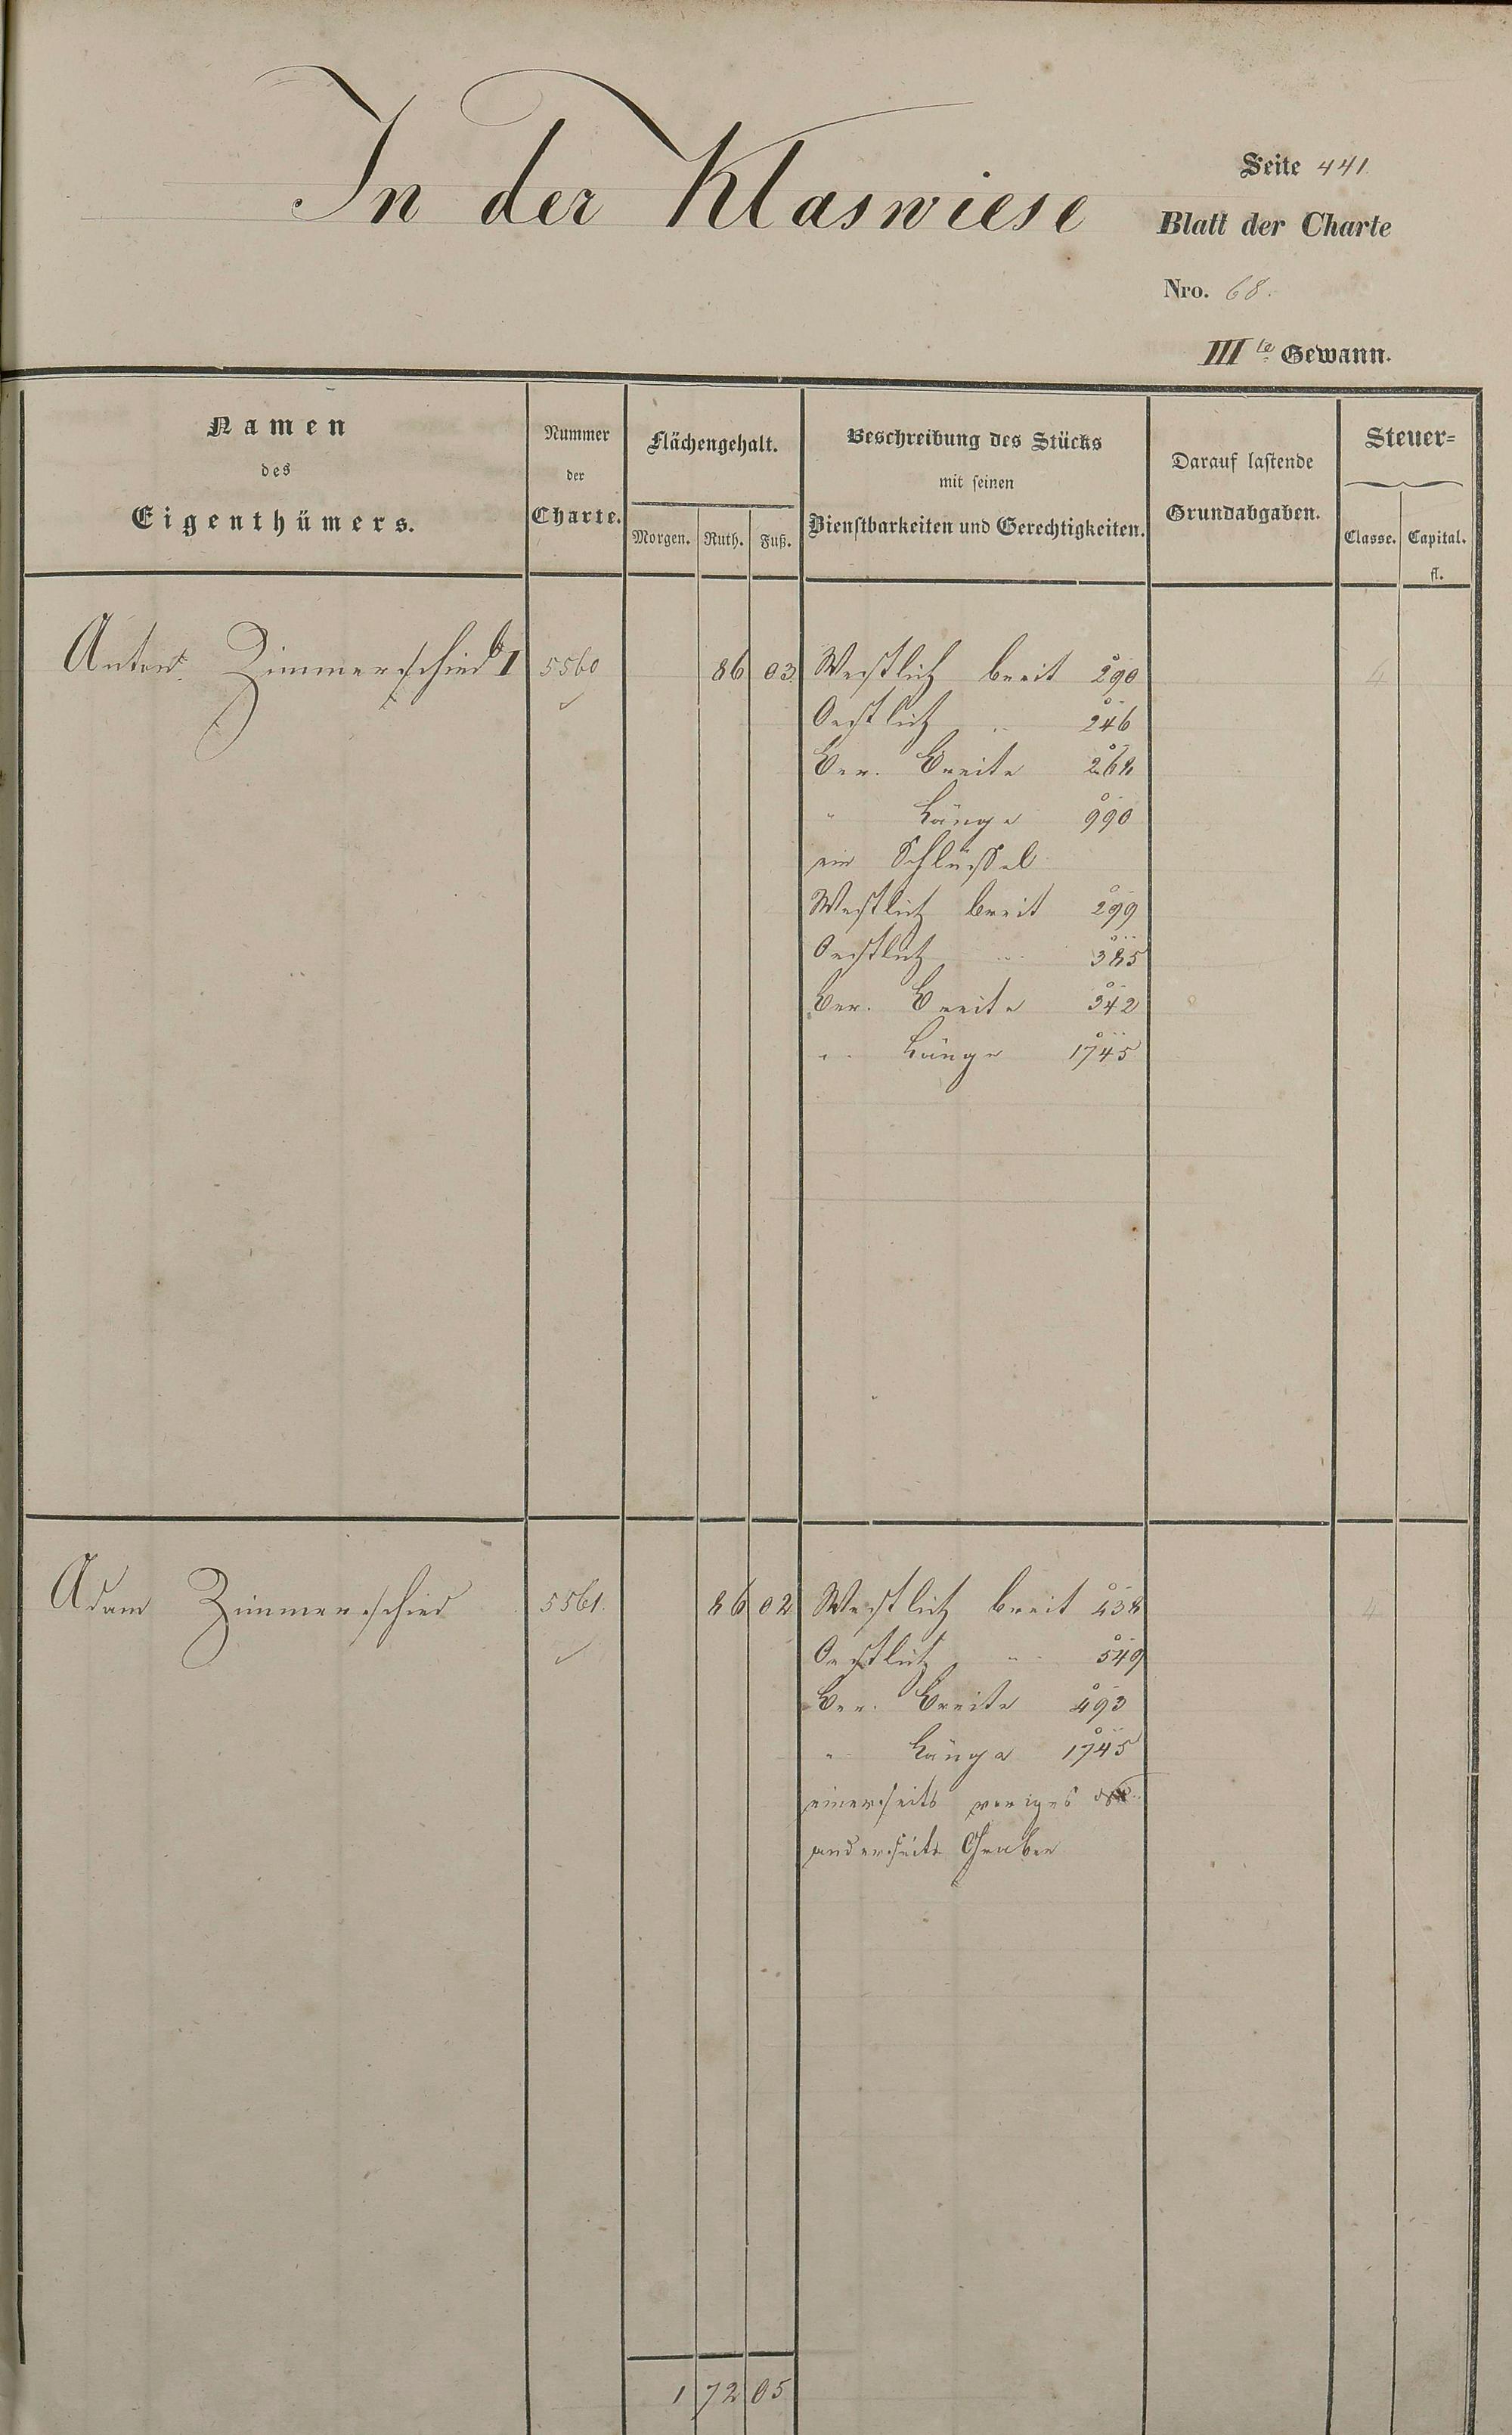 In der Klaswiese
Seite 441
Blatt der Charte
Nro. 68.
IIIte Gewann.
Namen
des
Eigenthümers.
Nummer
der
Charte.
Flächengehalt.
Morgen. Ruth. Fuß.
Beschreibung des Stücks
mit seinen
Dienstbarkeiten und Gerechtigkeiten.
Darauf lastende
Grundabgaben.
Steuer=
Classe. Capital.
fl.
Anton Zimmerschied I 5560 86 03 Westlich breit 290 4
Oestlich " 246
Ber. Breite 268
" Länge 990
ein Schlüssel
Westlich breit 299
Oestlich " 385
Ber. Breite 342
" Länge 1745
Adam Zimmerschied 5561. 86 02 Westlich breit 438 4
Oestlich " 549
Ber. Breite 493
" Länge 1745
einerseits voriges
anderseits Graben
1 72 05